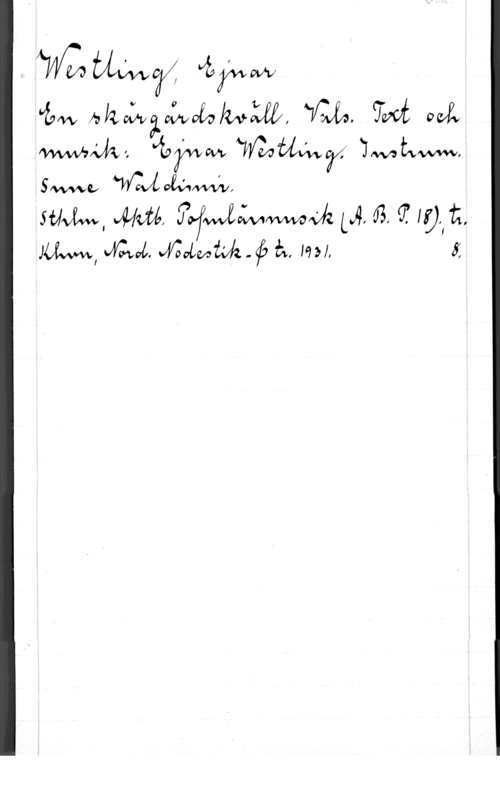 Westling, Ejnar
En skärgårdskväll. Vals. Text och
musik: Ejnar Westling. Instrum.
Sune Waldimir.
Sthlm, Aktb. Populärmusik (A. B. P. 18), tr.
Khvn, Nord. Nodestik-& tr. 1931. 8.